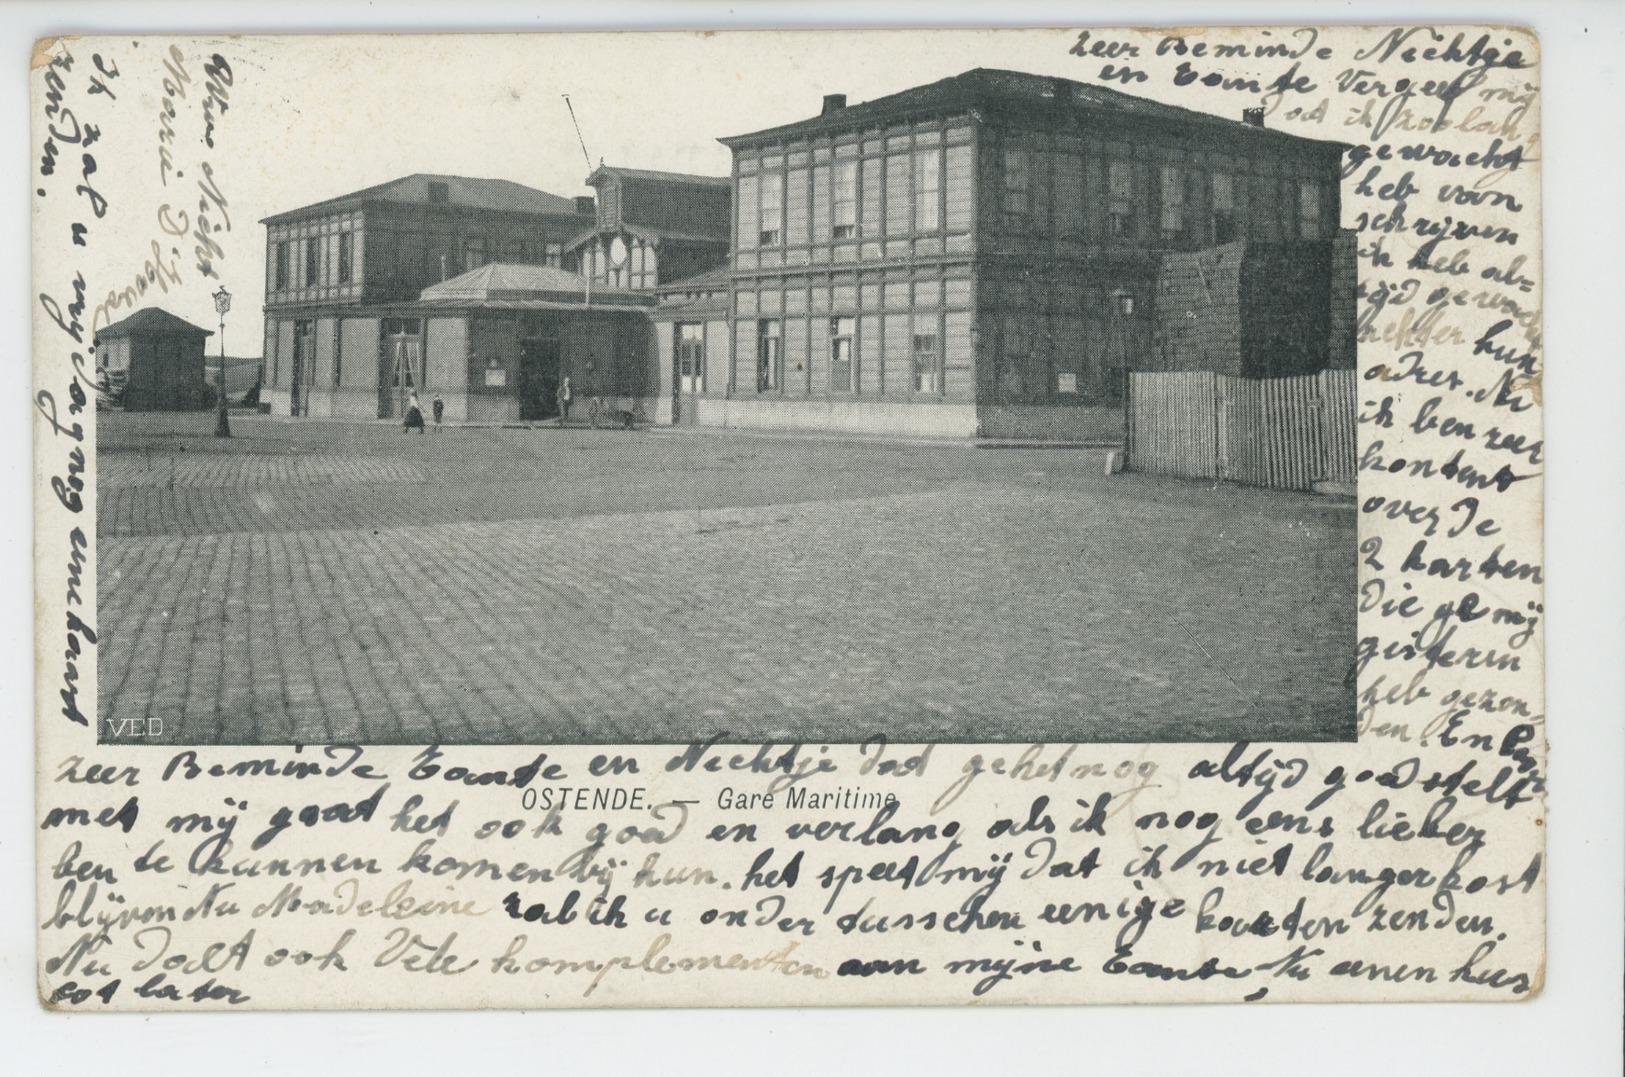 zeer Beminde Nichtje
en Tante Vergeef mij
dat ik zoo lang
gewacht
heb van
schrijven
ik heb al=
tijd gewacht
achter hun
adres. Nu
ik ben zeer
kontent
over de
2 karten
die ge mij
gisteren
heb gezon=
den. En
zeer Beminde Tante en Nichtje dad gehet nog altijd goed stelt
OSTENDE. — Gare Maritime
met mij gaat het ook goed en verlang als ik nog eens lieber
ben te kunnen komen bij hun. het speet mij dat ik niet langer kost
blijven Nu Madeleine zal ik u onder tusschen eenige kaarten zenden.
Nu Doet ook Vele komplementen aan mijne Tante, Nu eenen kus
tot later
ik zal u mijdag nog eene kaart
zenden.
Uwe Nicht
Marie
VED